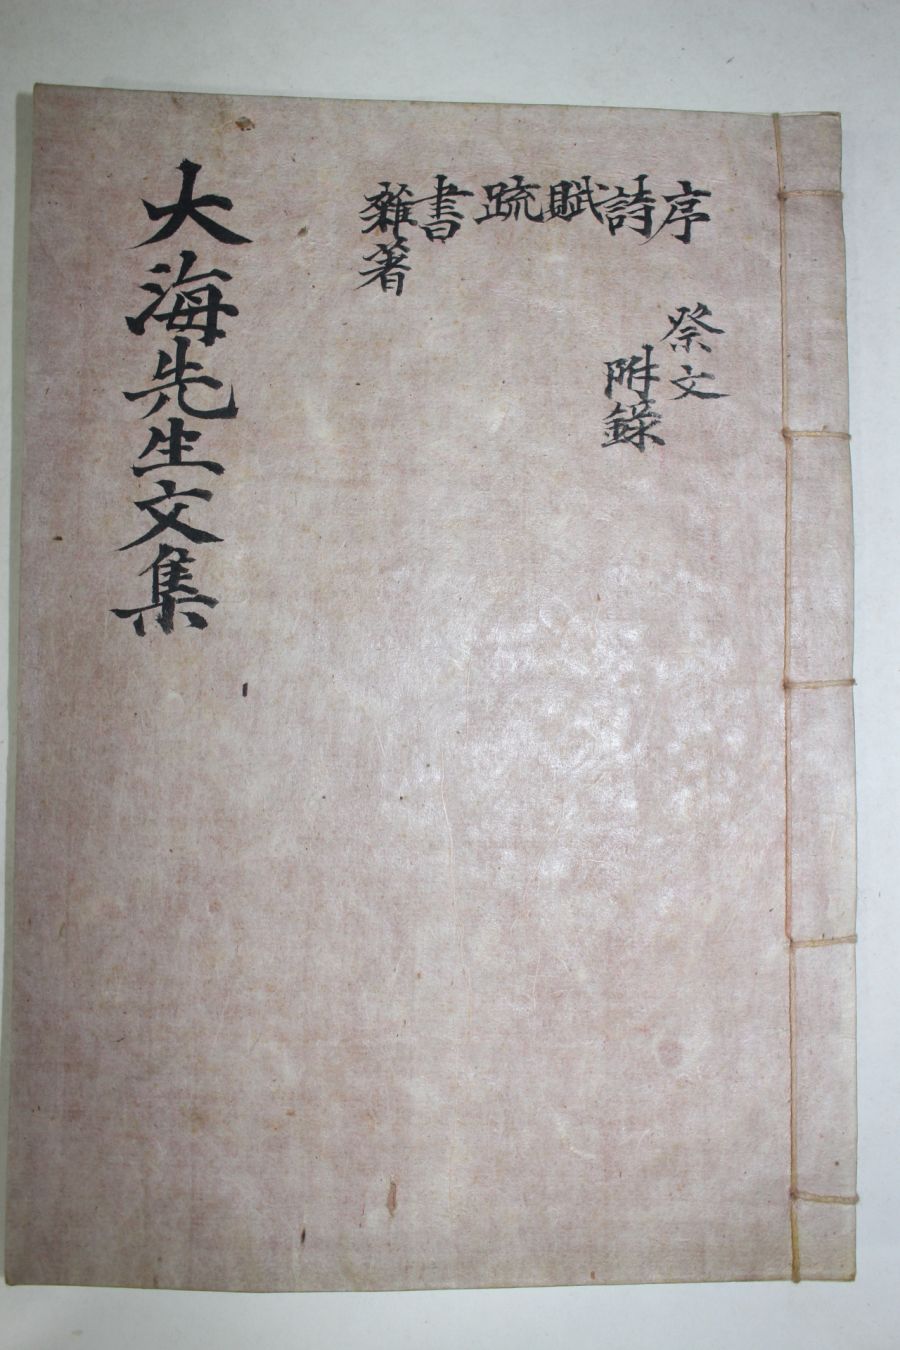 序
詩
賦
疏
書
雜著
祭文
附錄
大海先生文集